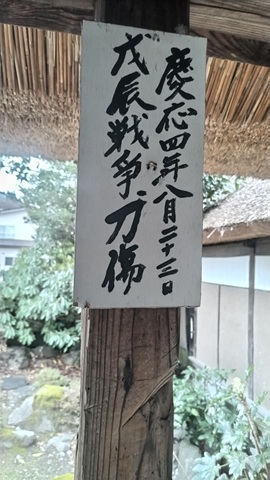 慶応四年八月二十三日
戊辰戦争、刀傷